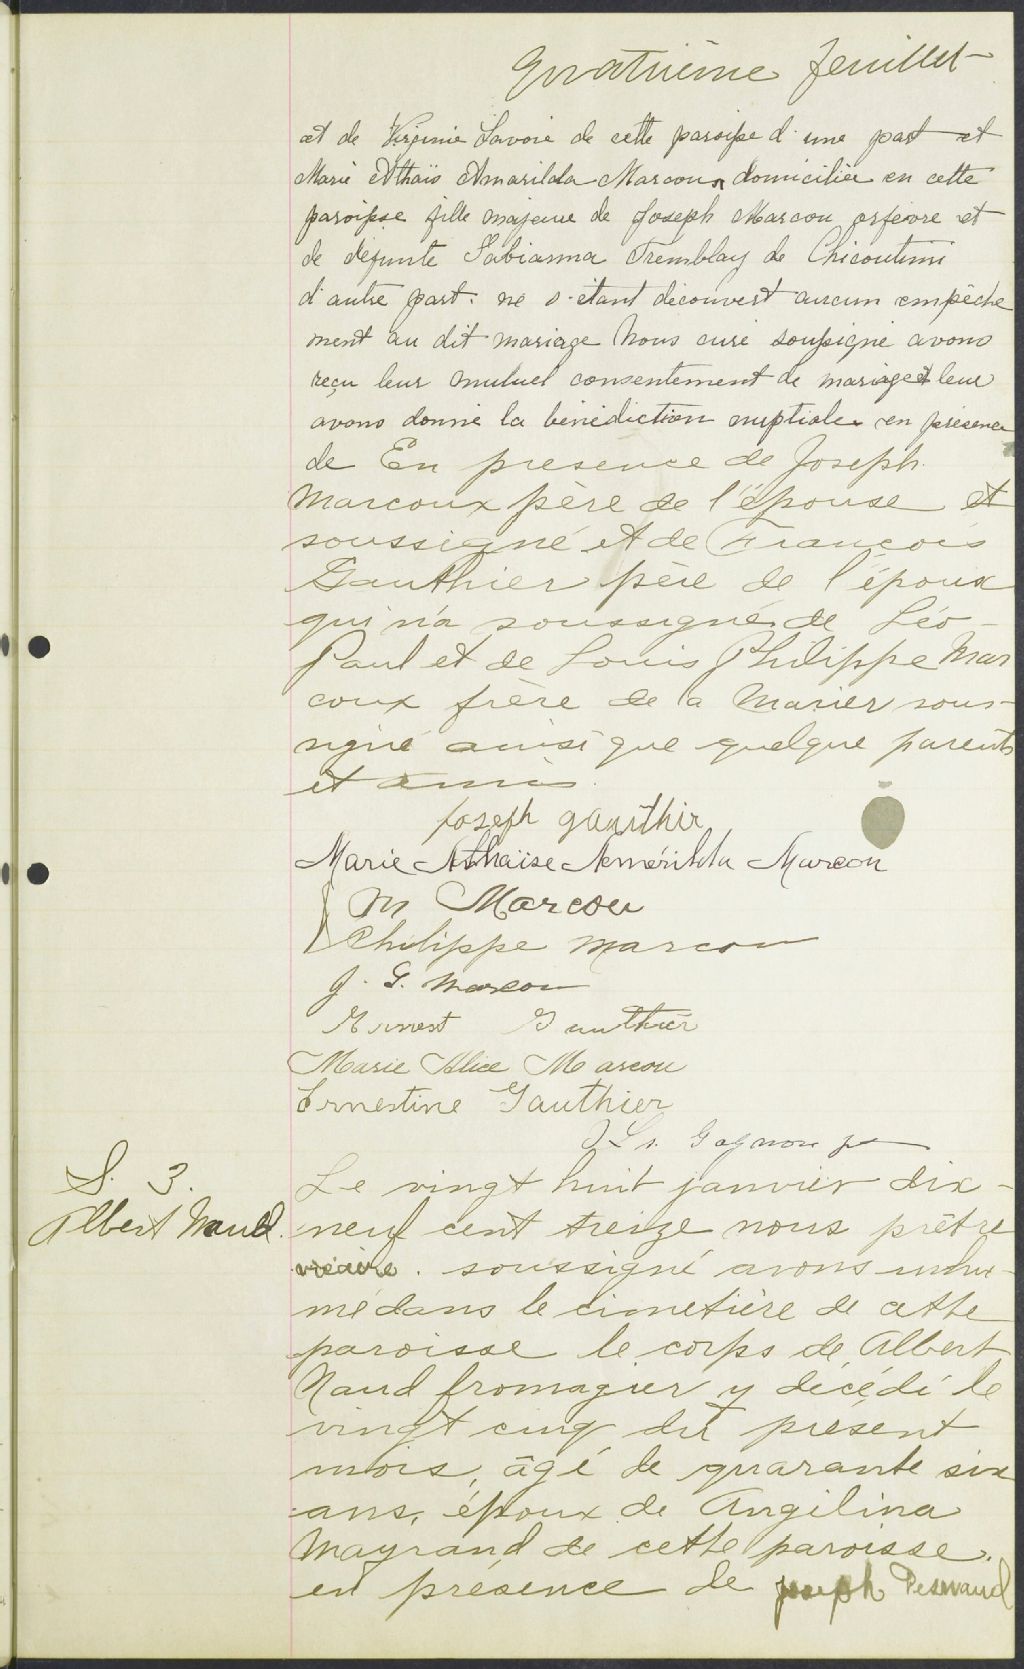 Quatrième feuillet
et de Virginie Savoie de cette paroisse d'une part et
Marie Athaïs Amarilda Marcoux domiciliée en cette
paroisse fille majeure de Joseph Marcou orfèvre et
de défunte Fabianna Tremblay de Chicoutimi
d'autre part. ne s'étant découvert aucun empêche
ment au dit mariage Nous curé soussigné avons
reçu leur mutuel consentement de mariage et leur
avons donné la bénédiction nuptiale en présence
de En presence de Joseph
Marcoux père de l'épouse et
soussigné et de François
Gauthier père de l'époux
qui n'a soussigné de Léo-
Paul et de Louis Philippe Mar
coux frère de a Marier sous-
signé ainsi que quelque parents
et amis.
Joseph gauthir
Marie Athaïse Amérilda Marcou
M Marcou
Philippe Marcou
J. G. Marcou
Ernest Gauthier
Marie Alice Marcou
Ernestine Gauthier
Gagnon
S. 3.
Albert Naud.
Le vingt huit janvier dix-
neuf cent treize nous prêtre
vicaire. soussigné avons inhu-
mé dans le cimetière de cette
paroisse le corps de Albert
Naud fromagier y décédé le
vingt cinq du présent
mois, âgé de quarante six
ans, époux de Angilina
Mayrand de cette paroisse.
en présence de joseph